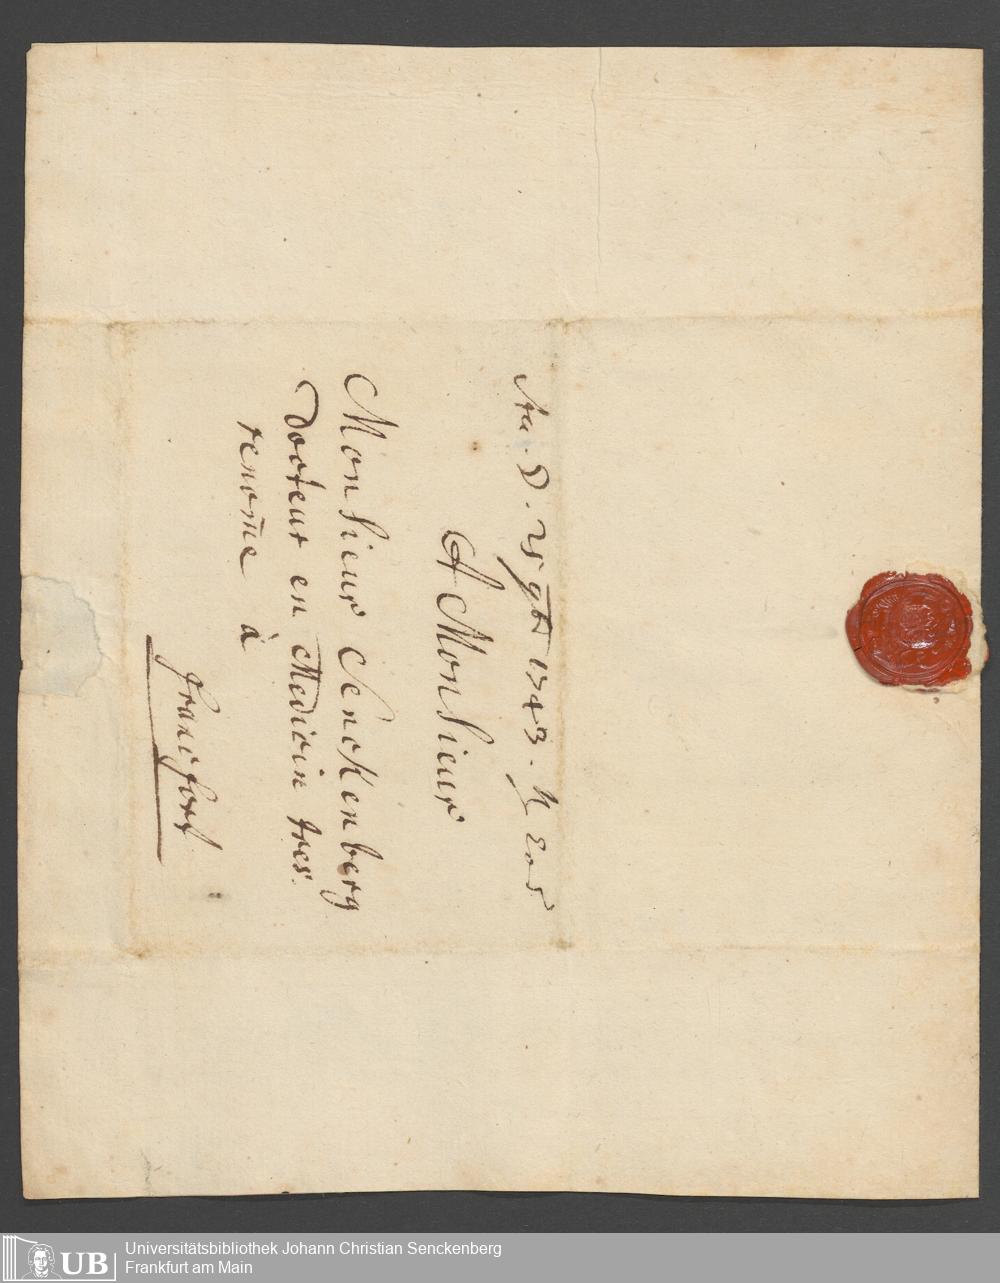 A Monsieur
Monsieur Senckenberg
Docteur en Medicin tres
renom̄e à
francfort
1743.
UB
Universitätsbibliothek Johann Christian Senckenberg
Frankfurt am Main